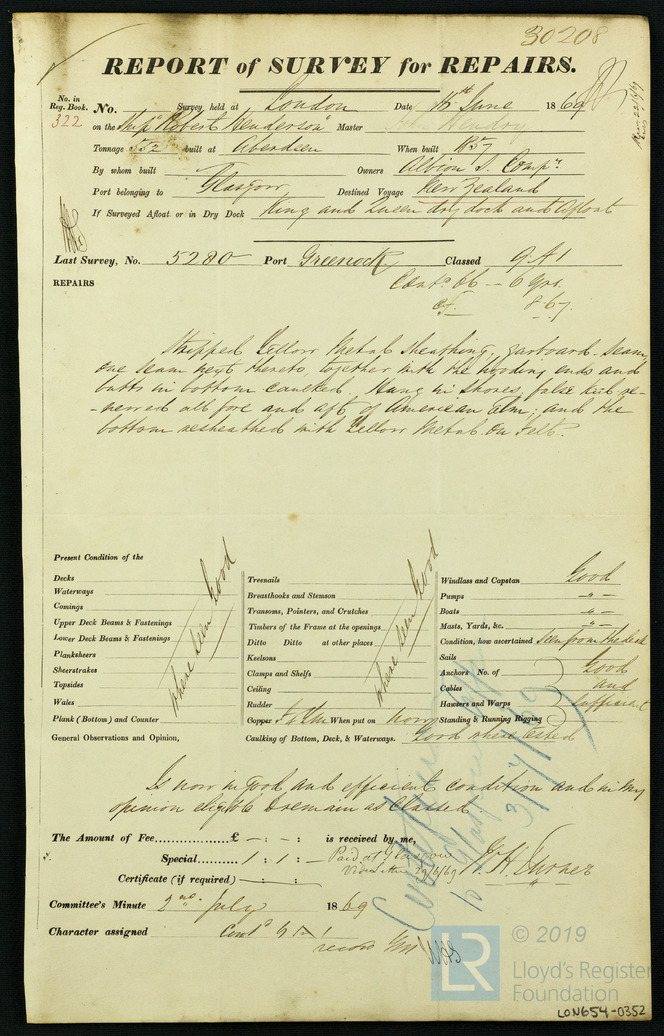 30208
REPORT of SURVEY for REPAIRS.
No. in Reg. Book. 322 No. Survey held at London Date 15th June 1869
on the Ship "Robert Henderson" Master
Tonnage 552 built at Aberdeen When built 1857
By whom built Owners Albion S. Compy.
Port belonging to Glasgow Destined Voyage New Zealand
If Surveyed Afloat or in Dry Dock King and Queen dry dock and Afloat
Last Survey, No. 5280 Port Greenock Classed 9 A1
REPAIRS Contd 66 - 6 yrs.
8.67.
Stripped Yellow Metal sheathing, garboard seam,
one seam next thereto, together with the hooding ends and
butts in bottom caulked. Hung in shores, false keel re-
-newed all fore and aft of American Elm; and the
bottom resheathed with Yellow Metal on Felt.
Present Condition of the
Decks
Waterways
Comings
Upper Deck Beams & Fastenings
Lower Deck Beams & Fastenings
Planksheers
Sheerstrakes
Topsides
Wales
Plank (Bottom) and Counter
where seen Good
Treenails
Breasthooks and Stemson
Transoms, Pointers, and Crutches
Timbers of the Frame at the openings
Ditto Ditto at other places
Keelsons
Clamps and Shelfs
Ceiling
Rudder
where seen Good
Copper When put on now
Windlass and Capstan Good
Pumps -"-
Boats -"-
Masts, Yards, &c. -"-
Condition, how ascertained Seen from the deck
Sails
Anchors No. of
Cables
Hawsers and Warps
Standing & Running Rigging
Good and sufficient
General Observations and Opinion, Caulking of Bottom, Deck, & Waterways. Good where tested
Is now in good and efficient condition and in my
opinion eligible to remain as Classed
The Amount of Fee £ - : - : is received by me,
Special 1 : 1 : - Paid at Glasgow
Certificate (if required) - : - : 29/6/69
W. H. Turner
3/7/69
Committee's Minute 2nd July 1869
Character assigned Contd 9 A1
© 2019
LR Lloyd's Register
Foundation
LON654-0352